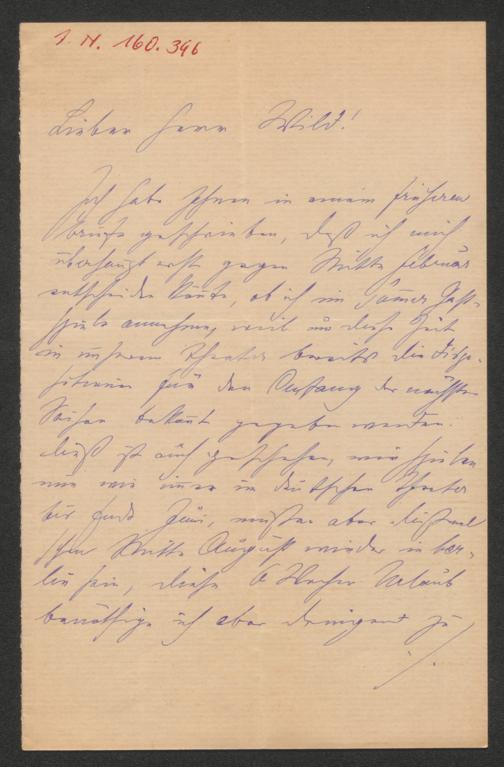 I. N. 160.396
Lieber Herr Wild!
Ich habe Ihnen in einem früheren
Briefe geschrieben, daß ich mich
überhaupt erst gegen Mitte Februar
entscheiden könnte, ob ich im Sommer Gast-
spiele annehme, weil um diese Zeit
in unserem Theater bereits die Dispo-
sitionen für den Anfang der nächsten
Saison bekannt gegeben werden.
Dieß ist auch geschehen, wir spielen
nun wie immer im deutschen Theater
bis Ende Juni, müssen aber dießmal
schon Mitte August wieder in Ber-
lin sein, diese 6 Wochen Urlaub
benöthige ich aber dringend zu
./.